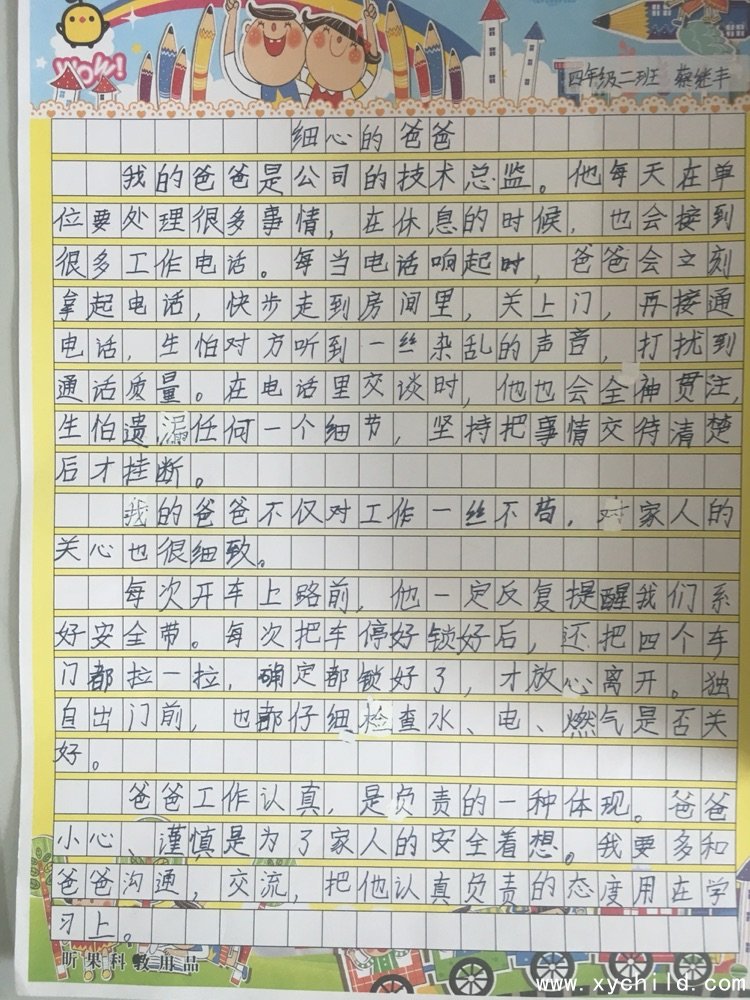 wow!
四年级二班 蔡继丰
细心的爸爸
我的爸爸是公司的技术总监。他每天在单
位要处理很多事情，在休息的时候，也会接到
很多工作电话。每当电话响起时，爸爸会立刻
拿起电话，快步走到房间里，关上门，再接通
电话，生怕对方听到一丝杂乱的声音，打扰到
通话质量。在电话里交谈时，他也会全神贯注，
生怕遗漏任何一个细节，坚持把事情交待清楚
后才挂断。
我的爸爸不仅对工作一丝不苟，对家人的
关心也很细致。
每次开车上路前，他一定反复提醒我们系
好安全带。每次把车停好锁好后，还把四个车
门都拉一拉，确定都锁好了，才放心离开。独
自出门前，也都仔细检查水、电、燃气是否关
好。
爸爸工作认真，是负责的一种体现。爸爸
小心、谨慎是为了家人的安全着想。我要多和
爸爸沟通，交流，把他认真负责的态度用在学
习上。
昕果科教用品
www.xychild.com